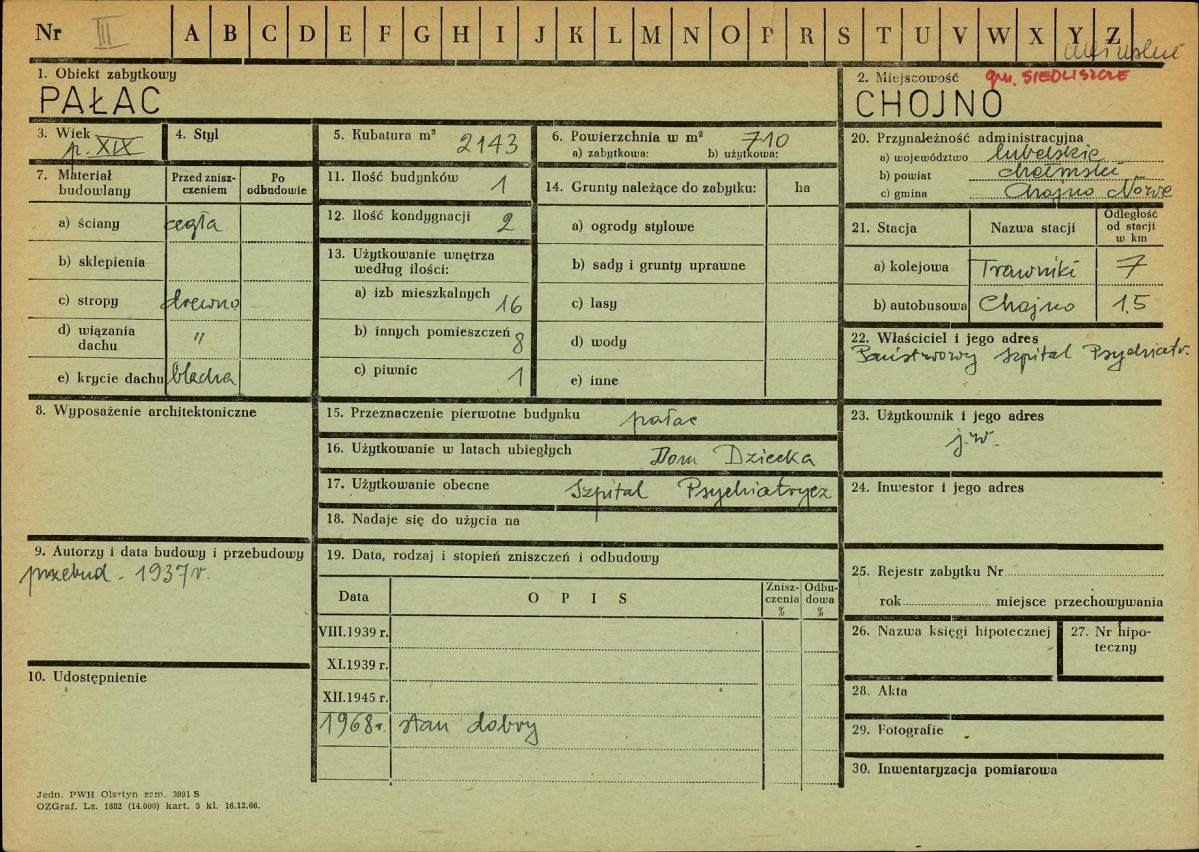 Nr III A B C D E F G H I J K L M N O P R S T U V W X Y Z
1. Obiekt zabytkowy
PAŁAC
2. Miejscowość gm. SIEDLISZCZE
CHOJNO
3. Wiek
p. XIX
4. Styl
5. Kubatura m³ 2143
6. Powierzchnia w m² 710
a) zabytkowa: b) użytkowa:
7. Materiał budowlany
Przed zniszczeniem
Po odbudowie
a) ściany cegła
b) sklepienia
c) stropy drewno
d) wiązania dachu "
e) krycie dachu blacha
8. Wyposażenie architektoniczne
9. Autorzy i data budowy i przebudowy
przebud. 1937 r.
10. Udostępnienie
11. Ilość budynków 1
12. Ilość kondygnacji 2
13. Użytkowanie wnętrza
według ilości:
a) izb mieszkalnych 16
b) innych pomieszczeń 8
c) piwnic 1
14. Grunty należące do zabytku: ha
a) ogrody stylowe
b) sady i grunty uprawne
c) lasy
d) wody
e) inne
15. Przeznaczenie pierwotne budynku pałac
16. Użytkowanie w latach ubiegłych Dom Dziecka
17. Użytkowanie obecne Szpital Psychiatrycz
18. Nadaje się do użycia na
19. Data, rodzaj i stopień zniszczeń i odbudowy
Data
O P I S
Zniszczenia %
Odbudowa %
VIII.1939 r.
XI.1939 r.
XII.1945 r.
1968 r. stan dobry
20. Przynależność administracyjna
a) województwo lubelskie
b) powiat chełmski
c) gmina Chojno Nowe
21. Stacja
Nazwa stacji
Odległość od stacji w km
a) kolejowa Trawniki 7
b) autobusowa Chojno 1.5
22. Właściciel i jego adres
Państwowy Szpital Psychiatr.
23. Użytkownik i jego adres
j.w.
24. Inwestor i jego adres
25. Rejestr zabytku Nr
rok miejsce przechowywania
26. Nazwa księgi hipotecznej
27. Nr hipo-
teczny
28. Akta
29. Fotografie
30. Inwentaryzacja pomiarowa
Jedn. PWH Olsztyn zam. 3991 S
OZGraf. Lz. 1882 (14.000) kart. 5 kl. 16.12.66.